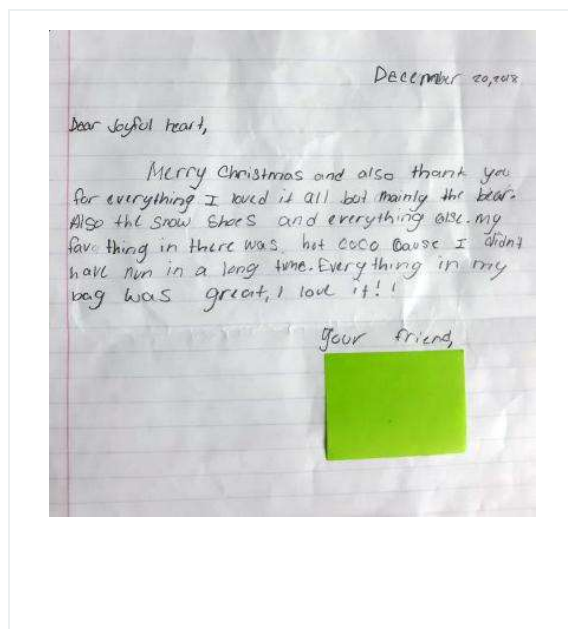 December 20,2018
Dear Joyful heart,
Merry Christmas and also thank you
for everything I loved it all but mainly the bear.
Also the snow shoes and everything else. my
fav thing in there was hot coco cause I didn't
have nun in a long time. Everything in my
bag was great, I love it!!
Your friend,